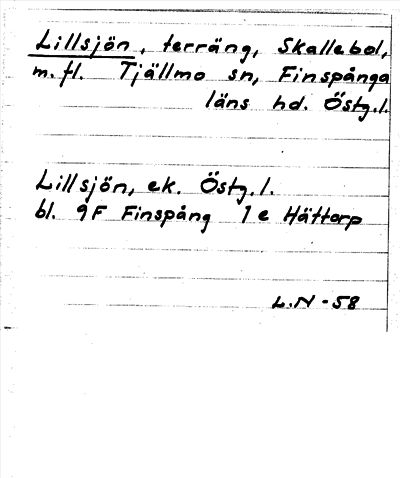 Lillsjön, terräng, Skallebol,
m. fl. Tjällmo sn, Finspånga
läns hd. Östg.l.
Lillsjön, ek. Östg.l.
bl. 9F Finspång 1e Hättorp
L.N -58